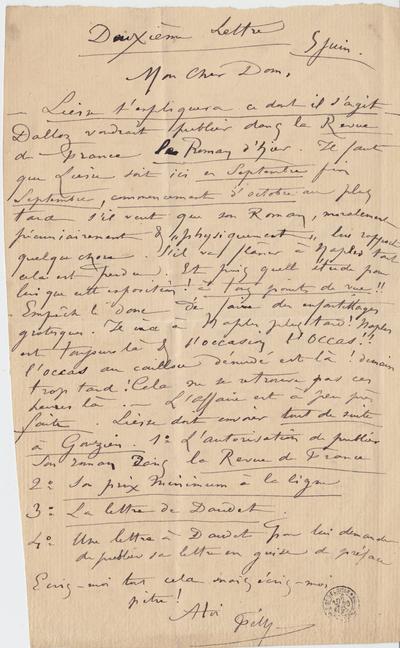 Deuxième lettre
5 juin.
Mon Cher Dom,
Liesse t'expliquera ce dont il s'agit
Dalloz voudrait publier dans la Revue
de France le Roman d'hier. Il faut
que Liesse soit ici en Septembre fin
Septembre, commencement d'octobre au plus
tard s'il veut que son Roman, moralement
pécuniairement & "physiquement", lui rapporte
quelque chose. S'il va flâner à Naples tout
cela est perdu. Et puis quelle étude pour
lui que cette exposition! à tous points de vue!!
Empêche le donc de faire des enfantillages
grotesques. Naples
est toujours là & l'occasion l'occas!!
l'occas au caillou dénudé est là! demain
trop tard! Cela ne se retrouve pas ces
heures là. L'affaire est à peu près
faite. Liesse doit envoyer tout de suite
à Gouzien. 1º L'autorisation de publier
son roman dans la Revue de France
2º Son prix minimum à la ligne
3º La lettre de Daudet.
4º Une lettre à Daudet pour lui demander
de publier sa lettre en guise de préface
Ecris-moi tout cela mais écris-moi
pitre!
A toi Fély